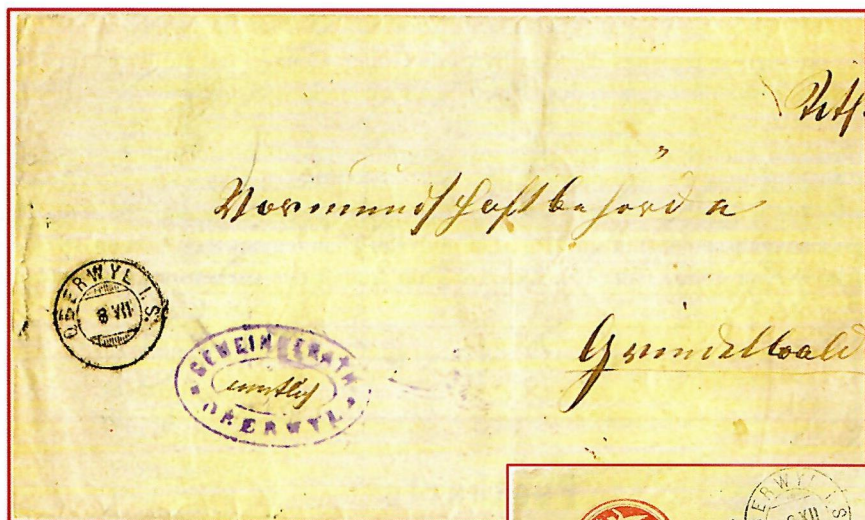 Vormundschaftbehörde
Grindelwald
OBERWYL I. S.
8 XII
GEMEINDERATH
amtlich
OBERWYL
ERWYL I. S
XII